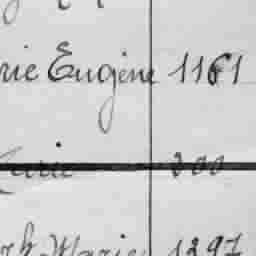 rie Eugène 1161
urie 300
ph Marie 1297